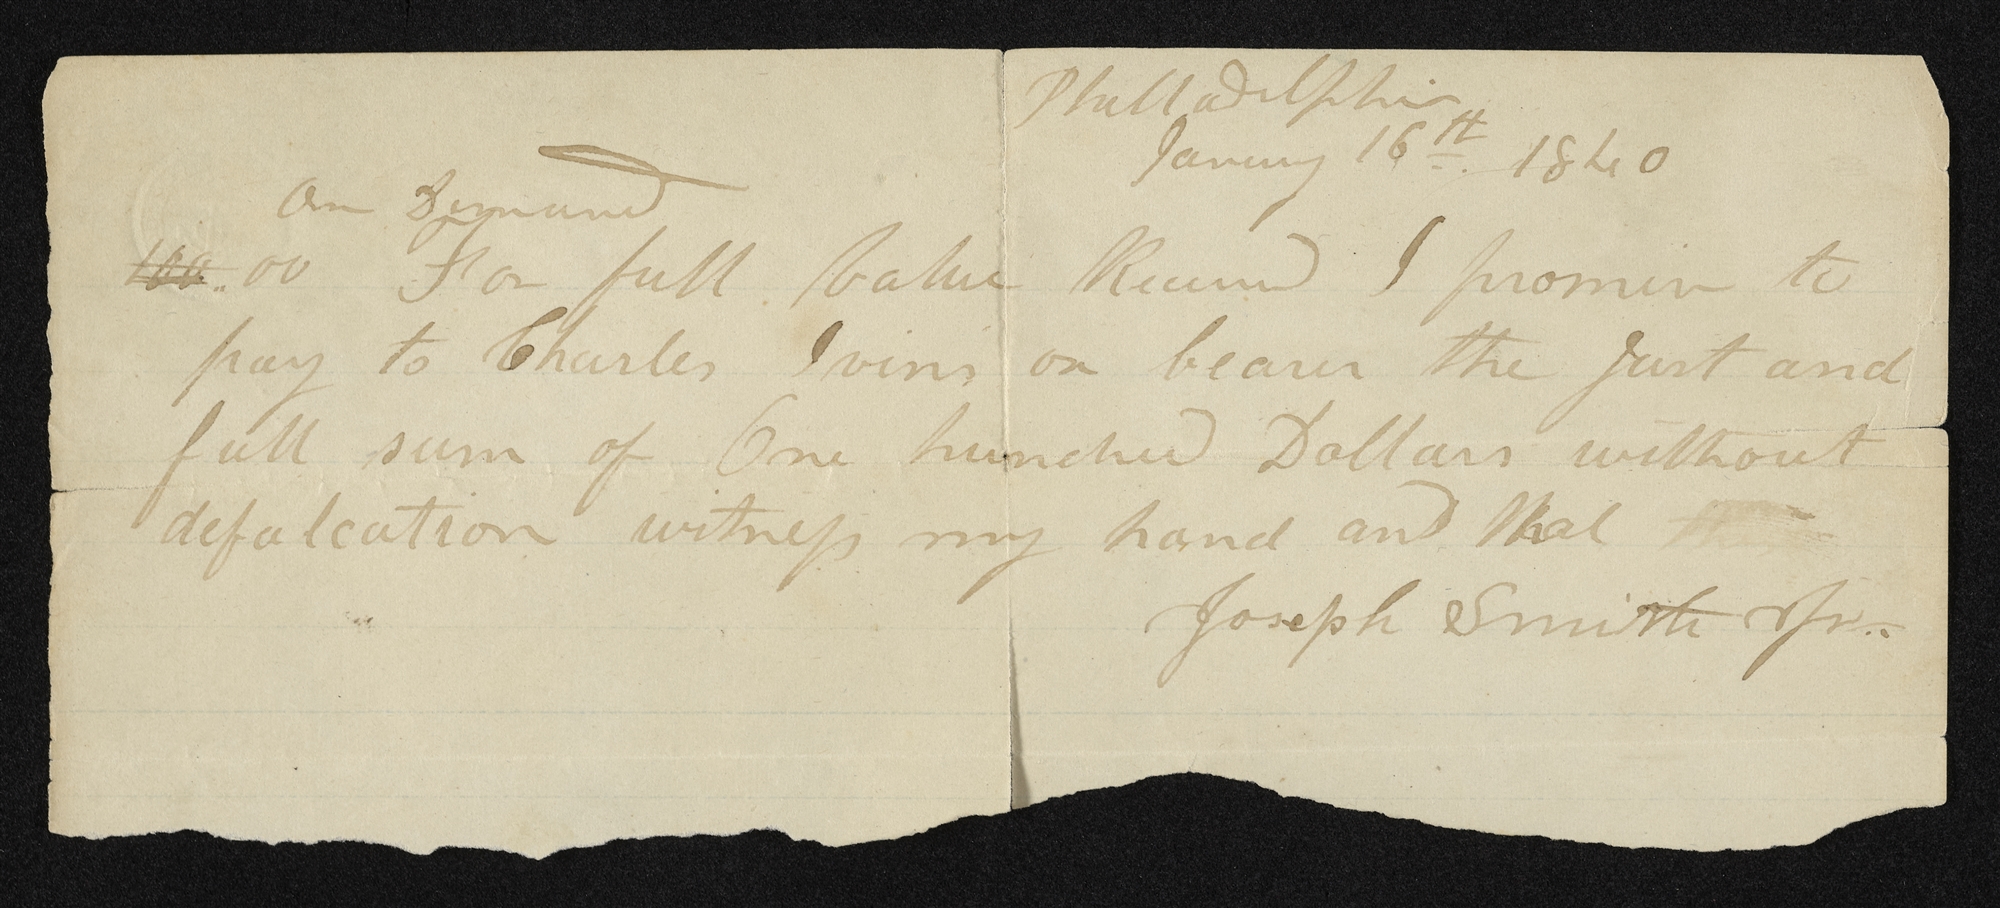 Philladelphia
January 16th 1840
On Demand
100.00 For full value Received I promise to
pay to Charles Ivins or bearer the Just and
full sum of One hundred Dollars without
defalcation witness my hand and Seal
Joseph Smith Jr.